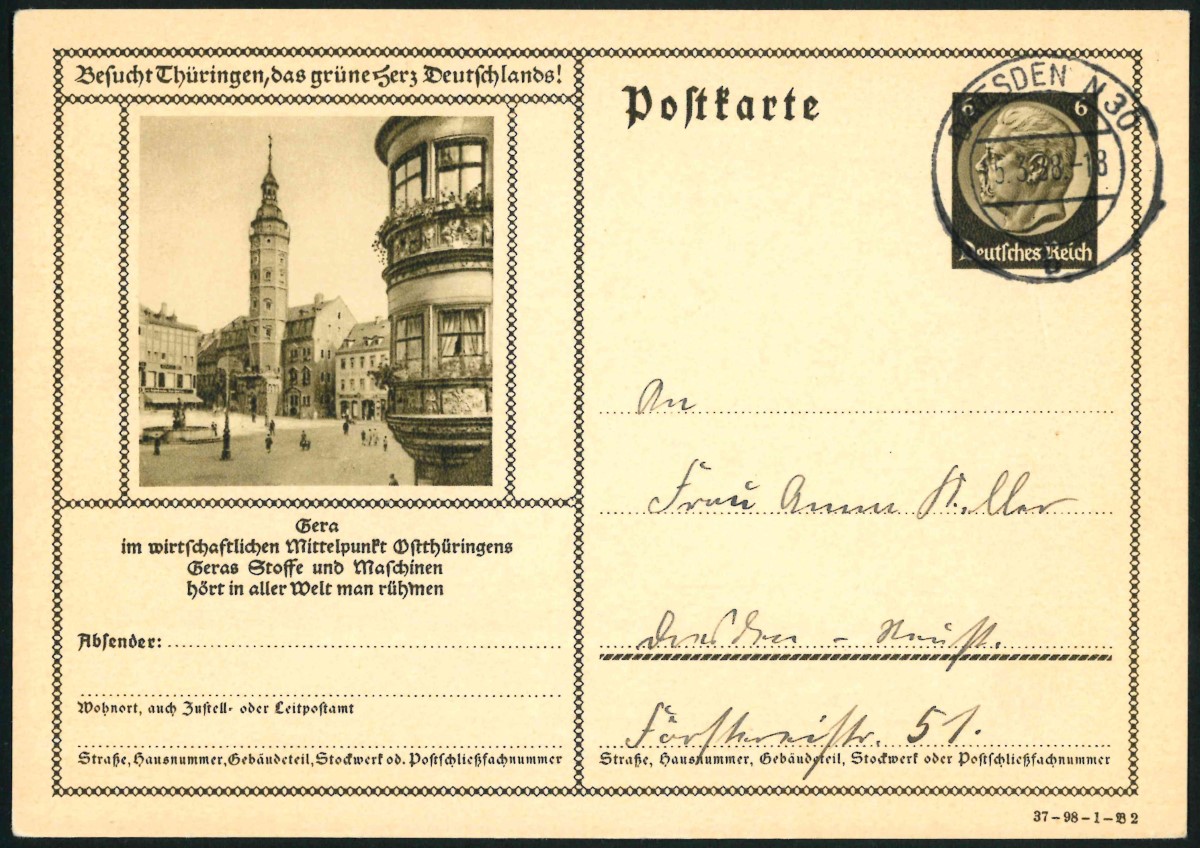 Besucht Thüringen, das grüne Herz Deutschlands!
Gera
im wirtschaftlichen Mittelpunkt Ostthüringens
Geras Stoffe und Maschinen
hört in aller Welt man rühmen
Absender:
Wohnort, auch Zustell- oder Leitpostamt
Straße, Hausnummer, Gebäudeteil, Stockwerk od. Postschließfachnummer
Postkarte
6 6
Deutsches Reich
DRESDEN N 30
15.3.38.-18
b
An
Frau Anna
Dresden - Neust.
Förstereistr. 51.
Straße, Hausnummer, Gebäudeteil, Stockwerk oder Postschließfachnummer
37-98-1-B 2